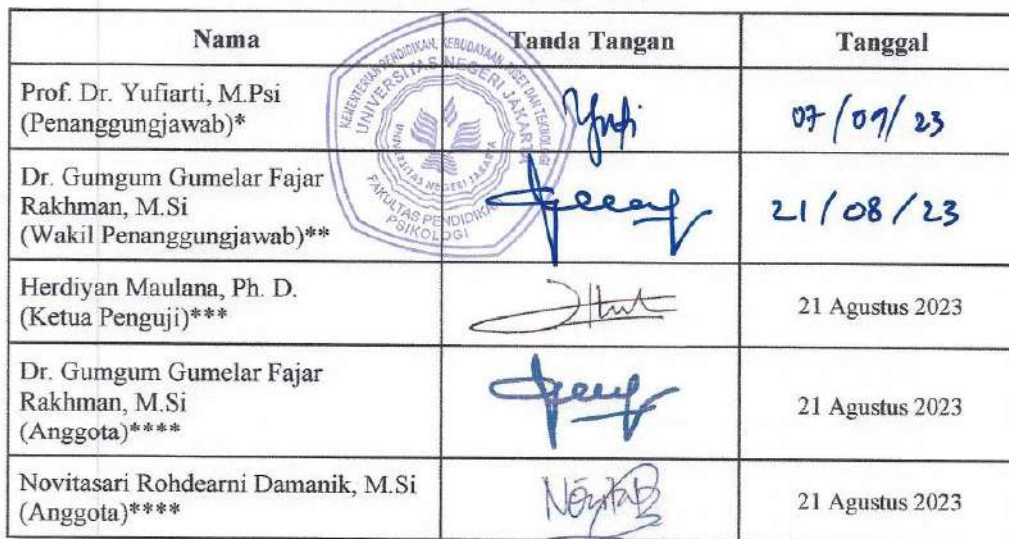 Nama Tanda Tangan Tanggal
Prof. Dr. Yufiarti, M.Psi
(Penanggungjawab)*
07/09/23
Dr. Gumgum Gumelar Fajar
Rakhman, M.Si
(Wakil Penanggungjawab)**
21/08/23
Herdiyan Maulana, Ph. D.
(Ketua Penguji)***
21 Agustus 2023
Dr. Gumgum Gumelar Fajar
Rakhman, M.Si
(Anggota)****
21 Agustus 2023
Novitasari Rohdearni Damanik, M.Si
(Anggota)****
21 Agustus 2023
KEMENTERIAN PENDIDIKAN, KEBUDAYAAN, RISET DAN TEKNOLOGI
UNIVERSITAS NEGERI JAKARTA
UNIVERSITAS NEGERI JAKARTA
FAKULTAS PENDIDIKAN
PSIKOLOGI